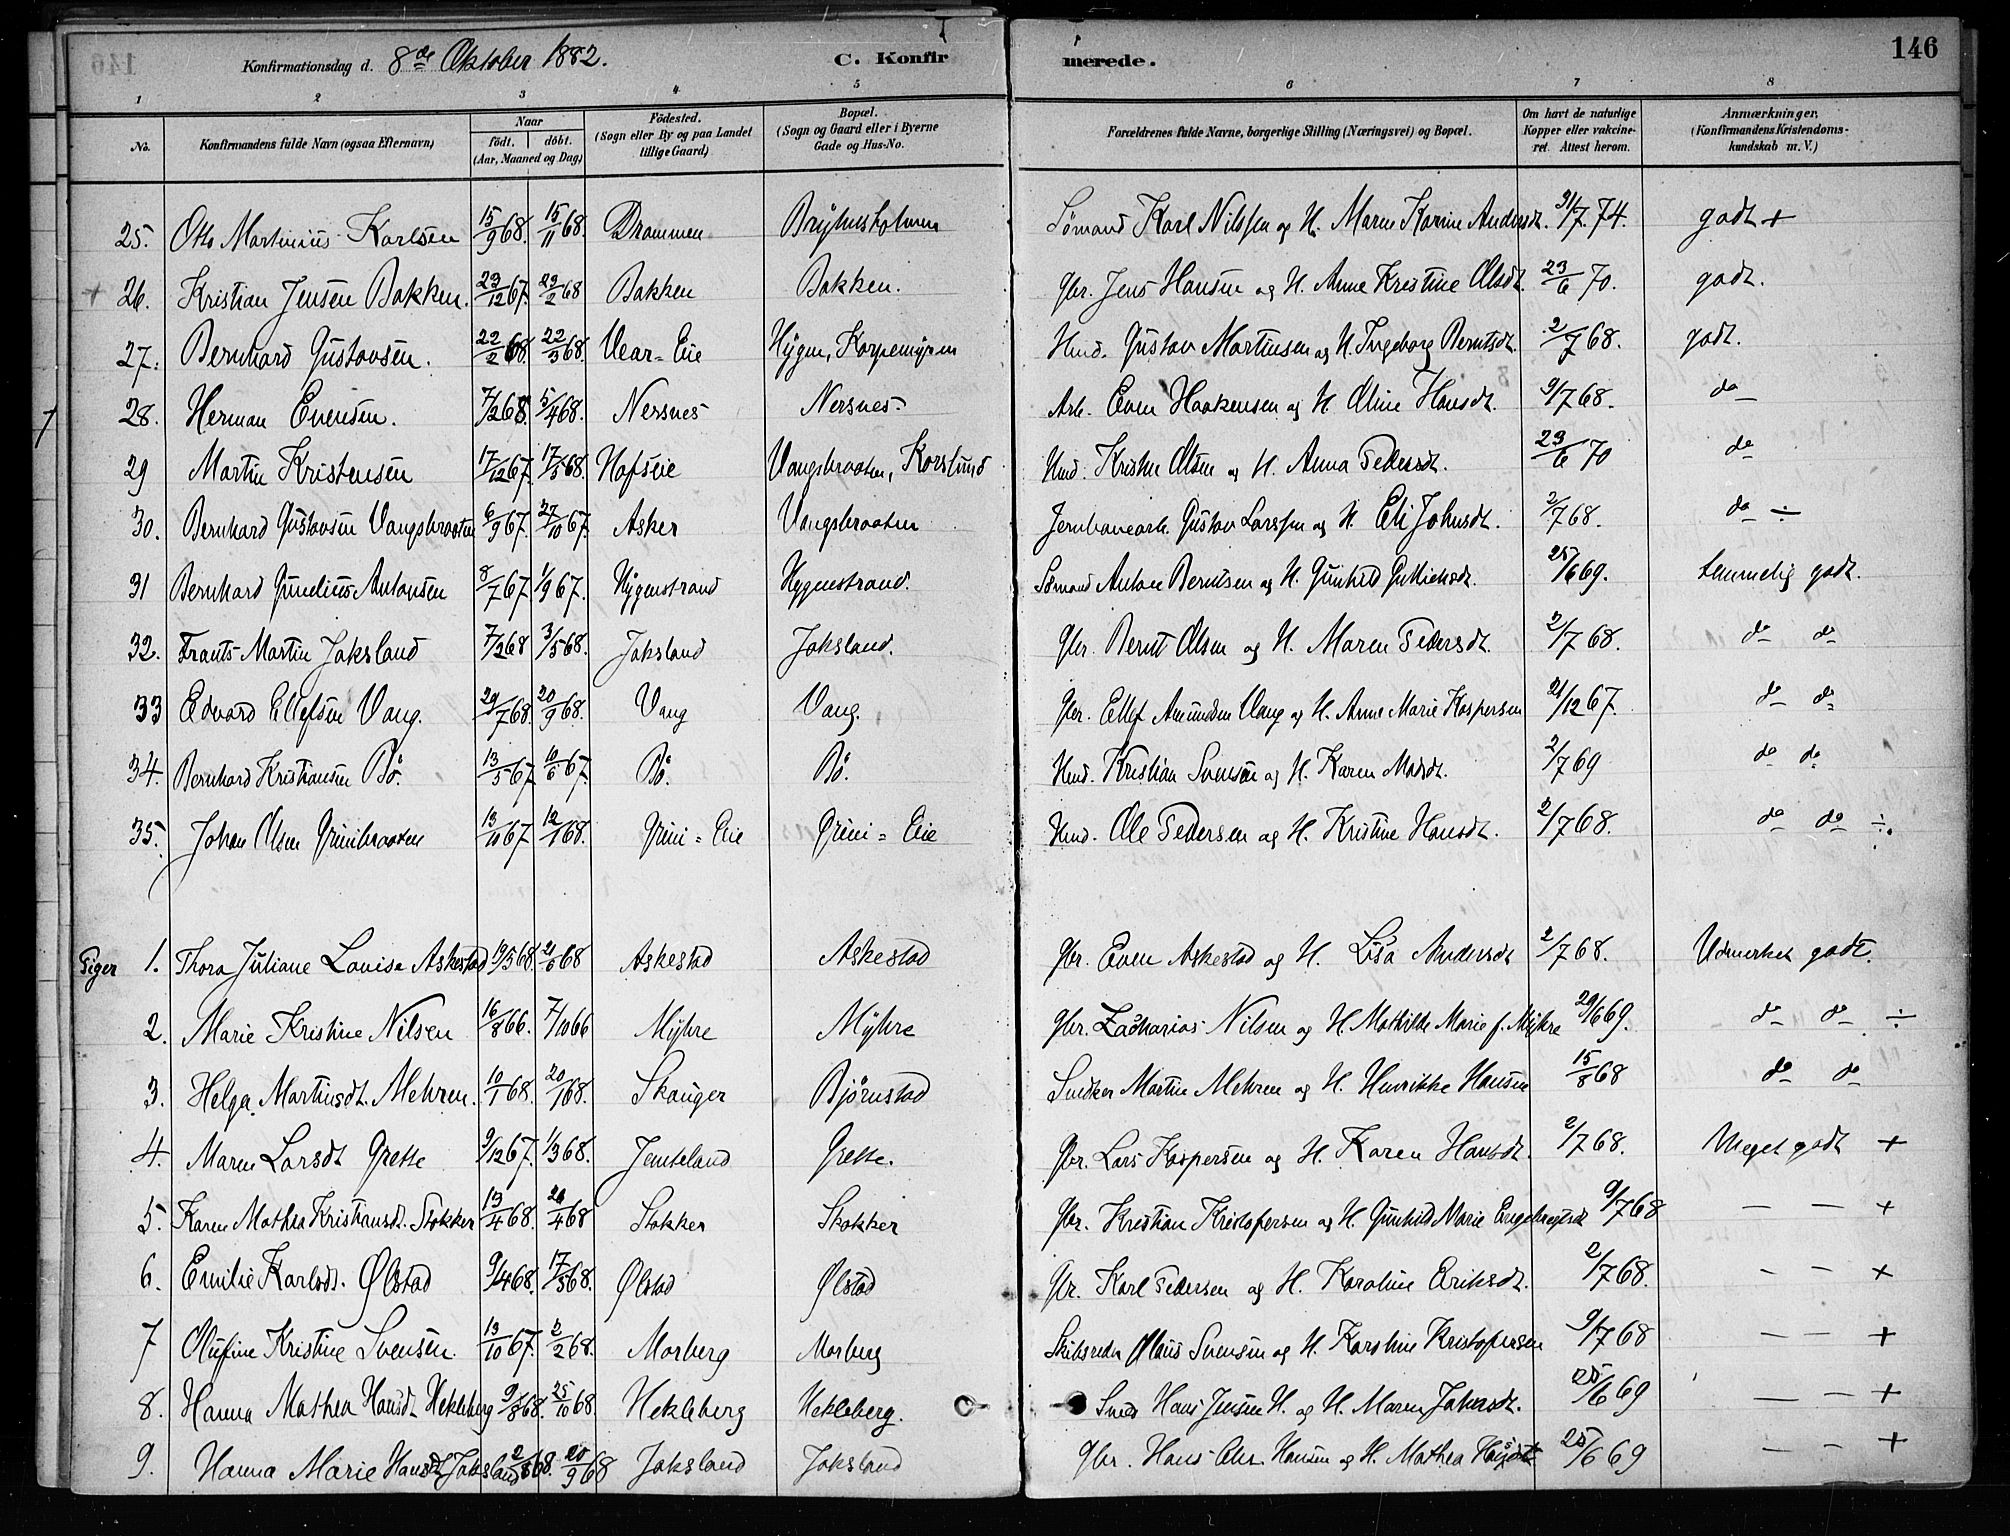 146
Konfirmationsdag d. 8de Oktober 1882. C. Konfirmerede.
1 2 3 4 5 6 7 8
No. Konfirmandens fulde Navn (ogsaa Efternavn) Naar født. døbt. (Aar, Maaned og Dag) Fødested. (Sogn eller By og paa Landet tillige Gaard) Bopæl. (Sogn og Gaard eller i Byerne Gade og Hus-No. Forældrenes fulde Navne, borgerlige Stilling (Næringsvei) og Bopæl. Om havt de naturlige Kopper eller vakcineret. Attest herom. Anmærkninger. (Konfirmandens Kristendomskundskab m. V.)
25. Otto Martinius Karlsen 15/9 68. 15/11 68. Drammen Bryhnsholmen Sømand Karl Nilssen og H. Maren Karine Andersdt. 31/7 74. godt +
+ 26. Kristian Jensen Bakken. 23/12 67. 23/2 68 Bakken Bakken. Gbr. Jens Hansen og H. Anne Kristine Olsdt. 23/6 70. godt.
27. Bernhard Gustavsen. 22/2 68. 22/3 68. Vear-Eie Hygen, Korpemyren Hmd. Gustav Martinsen og H. Ingeborg Berntsdt. 2/7 68. godt.
28. Herman Evensen. 7/2 68. 5/4 68. Nersnes Nersnes. Arb. Even Haakensen og H. Oline Hansdt. 9/7 68. do
29 Martin Kristensen 17/12 67. 17/5 68. Hofseie Vangsbraaten, Korslund Hmd. Kristen Olsen og H. Anna Pedersdt. 23/6 70 do
30. Bernhard Gustavsen Vangsbraaten 6/9 67. 27/10 67. Asker Vangsbraaten Jernbanearb. Gustav Larssen og H. Eli Johnsdt. 2/7 68. do ÷
31 Bernhard Gundius Antonsen 8/7 67 1/9 67. Hygenstrand Hygenstrand. Sømand Anton Berntsen og H. Gunhild Gulliksdt. 25/6 69. temmelig godt.
32. Frants Martin Jaksland 7/2 68 3/5 68. Jaksland Jaksland. Gbr. Bernt Olsen og H. Maren Pedersdt. 2/7 68. do do
33 Edvard Ellefsen Vang. 29/7 68. 20/9 68. Vang Vang. Gbr. Ellef Amundsen Vang og H. Anne Marie Kaspersen 21/12 67. do do
34. Bernhard Kristiansen Bø. 13/5 67. 10/6 67. Bø. Bø. Hmd. Kristian Svensen og H. Karen Madsdt. 2/7 69 do do
35. Johan Olsen Grinibraaten 13/10 67 12/1 68. Grini-Eie Grini-Eie Hmd. Ole Pedersen og H. Kristine Hansdt. 2/7 68. do do ÷.
Piger 1. Thora Juliane Lovise Askestad 19/5 68. 21/6 68 Askestad Askestad Gbr. Even Askestad og H. Lisa Andersdt 2/7 68. Udmerket godt.
2. Marie Kristine Nilsen 16/8 66. 7/10 66 Myhre Myhre Gbr. Zacharias Nilsen og H. Mathilde Marie f. Myhre 29/6 69. do do ÷
3. Helga Martinsdt. Mehren. 10/1 68. 20/1 68. Skauger Bjørnstad Snedker Martin Mehren og H. Henrikke Hansen 15/8 68 do do
4. Maren Larsdt Grette 9/12 67. 1/3 68. Jenteland Grette. Gbr. Lars Kaspersen og H. Karen Hansdt. 2/7 68. Meget godt +
5. Karen Mathea Kristiansdt. Stokker 13/4 68. 26/4 68 Stokker Stokker Gbr. Kristian Kristofersen og H. Gunhild Marie Engebregtsdt 9/7 68 — — +
6. Emilie Karlsdt. Ølstad 9/4 68. 17/5 68. Ølstad Ølstad Gbr. Karl Pedersen og H. Karoline Eriksdt. 2/7 68. — — +
7 Olufine Kristine Svensen. 13/10 67. 2/2 68. Morberg Morberg Skibsreder Olaus Svensen og H. Karoline Kristofersen 9/7 68 — — +
8. Hanna Mathea Hansdt Hekleberg 9/8 68. 25/10 68. Hekleberg Hekleberg. Sned. Hans Jensen H. og H. Maren Jakobsdt. 25/6 69 — — +
9. Hanna Marie Hansdt Jaksland 2/8 68. 20/9 68 Jaksland Jaksland Gbr. Hans Chr. Hansen og H. Mathea 25/6 69 — — +